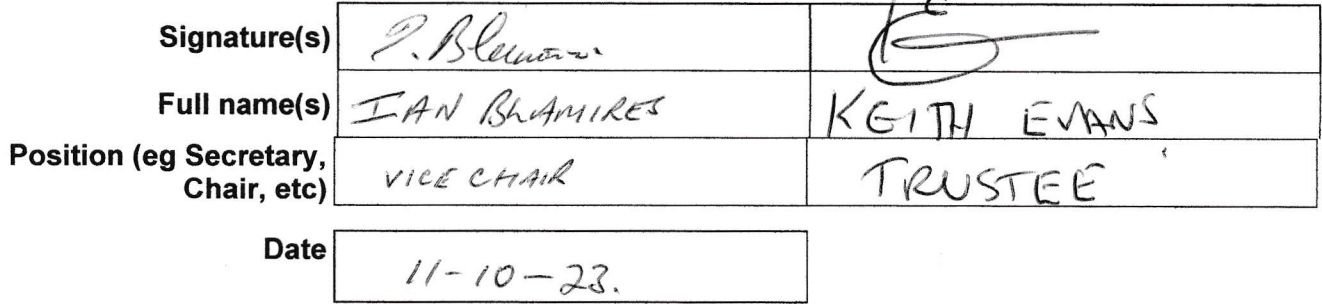 Signature(s) I. Blamires
Full name(s) IAN BLAMIRES KEITH EVANS
Position (eg Secretary, VICE CHAIR TRUSTEE
Chair, etc)
Date 11-10-23.